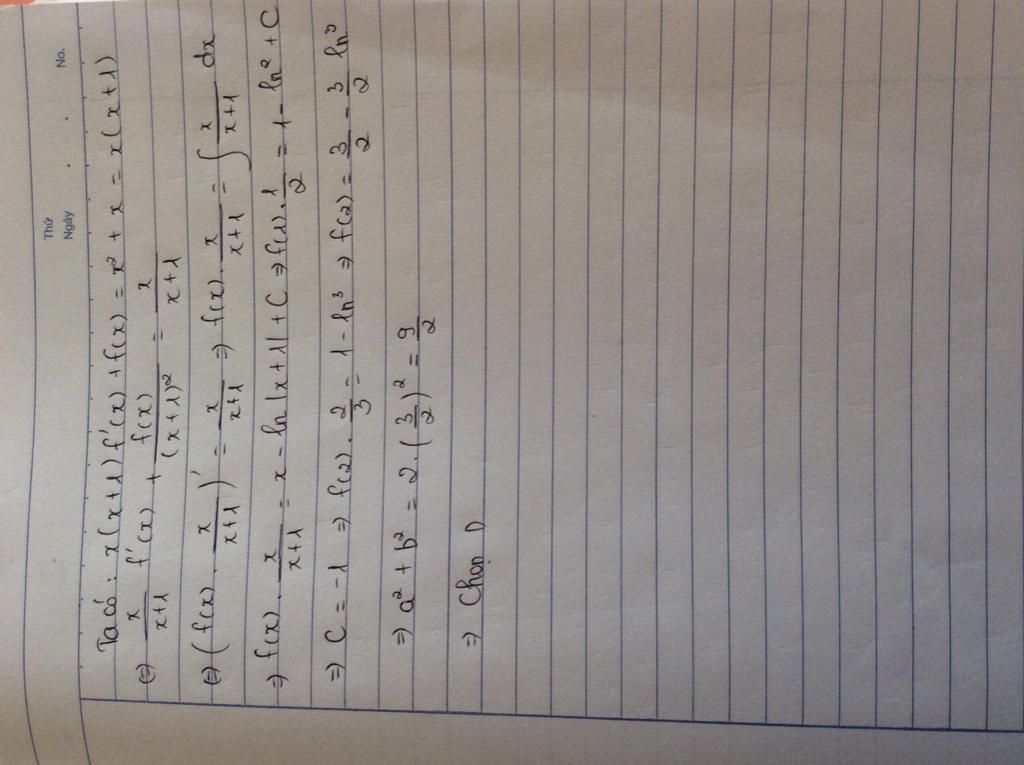 Thứ
Ngày
No.
Ta có: x(x+1) f'(x) + f(x) = x² + x = x(x+1)
(=) x/(x+1) f'(x) + f(x)/(x+1)² = x/(x+1)
(=) (f(x) . x/(x+1))' = x/(x+1) => f(x) . x/(x+1) = ∫ x/(x+1) dx
=> f(x) . x/(x+1) = x - ln|x+1| + C => f(1) . 1/2 = 1 - ln² + C
=> C = -1 => f(2) . 2/3 = 1 - ln³ => f(2) = 3/2 - 3/2 ln³
=> a² + b² = 2 . (3/2)² = 9/2
=> Chọn D